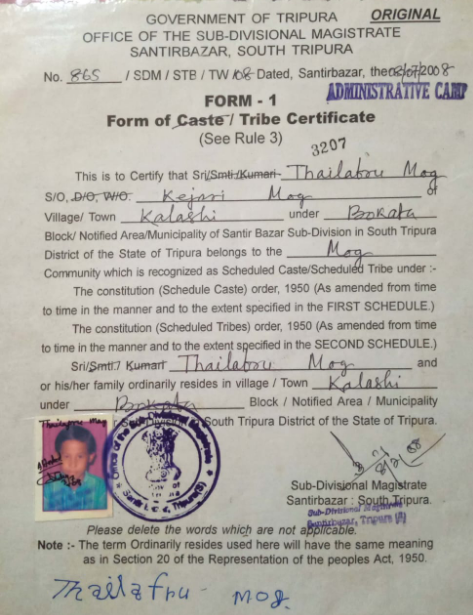 GOVERNMENT OF TRIPURA ORIGINAL
OFFICE OF THE SUB-DIVISIONAL MAGISTRATE
SANTIRBAZAR, SOUTH TRIPURA
No. 865 / SDM / STB / TW / 08 Dated, Santirbazar, the 02/07/2008
ADMINISTRATIVE CAMP
FORM - 1
Form of Caste / Tribe Certificate
(See Rule 3)
3207
This is to Certify that Sri/Smti./Kumari Thailafou Mog
S/O, D/O, W/O. Kejari Mog of
Village/ Town Kalashi under Bokafa
Block/ Notified Area/Municipality of Santir Bazar Sub-Division in South Tripura
District of the State of Tripura belongs to the Mog
Community which is recognized as Scheduled Caste/Scheduled Tribe under :-
The constitution (Schedule Caste) order, 1950 (As amended from time
to time in the manner and to the extent specified in the FIRST SCHEDULE.)
The constitution (Scheduled Tribes) order, 1950 (As amended from time
to time in the manner and to the extent specified in the SECOND SCHEDULE.)
Sri/Smti./ Kumari Thailafou Mog and
or his/her family ordinarily resides in village / Town Kalashi
under Bokafa Block / Notified Area / Municipality
South Tripura District of the State of Tripura.
Office of the Sub-Divisional Magistrate
Sub-Divisional Magistrate
Santirbazar : South Tripura.
Sub-Divisional Magistrate
Santirbazar, Tripura (S)
Please delete the words which are not applicable.
Note :- The term Ordinarily resides used here will have the same meaning
as in Section 20 of the Representation of the peoples Act, 1950.
Thailafru - Mog.